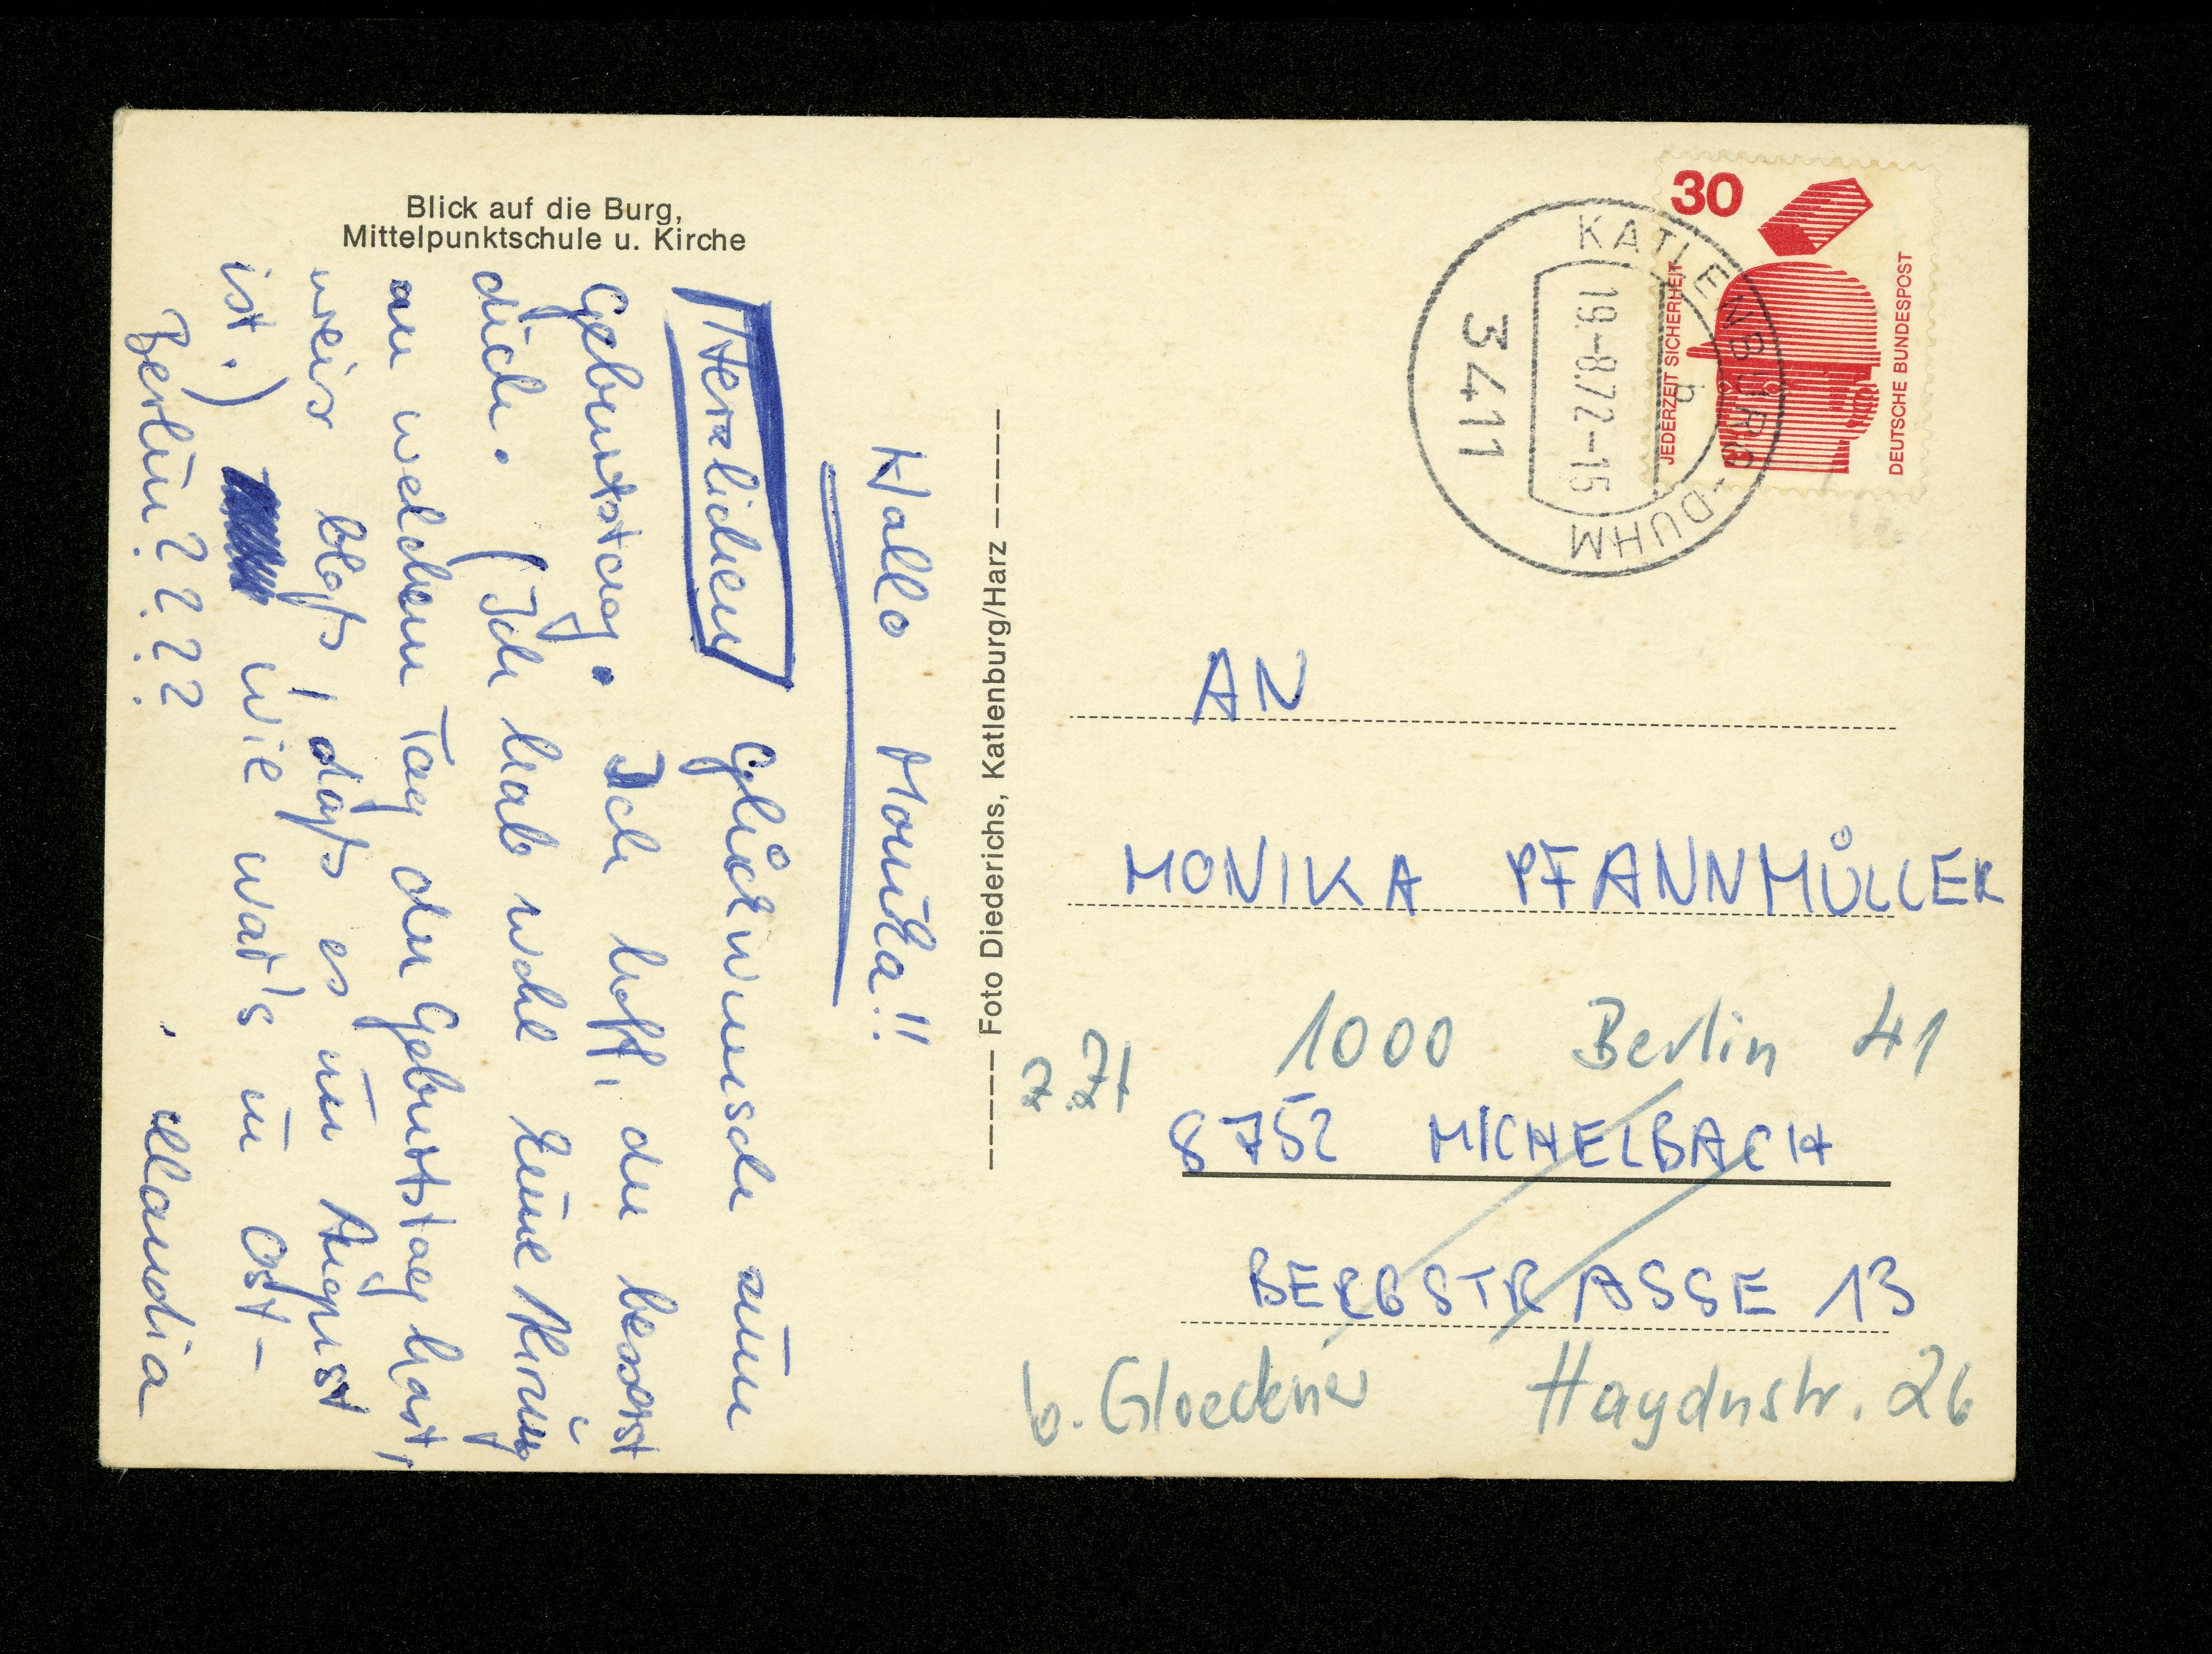 Blick auf die Burg,
Mittelpunktschule u. Kirche
Hallo Monika!!
Herzlichen Glückwunsch zum
Geburtstag. Ich hoff, du besserst
dich. (Ich hab wohl keine Ahnung
an welchem Tag du Geburtstag hast,
weis bloß, daß es im August
ist.) Wie war's in Ost-
Berlin????
Claudia
Foto Diederichs, Katlenburg/Harz
30
JEDERZEIT SICHERHEIT
DEUTSCHE BUNDESPOST
KATLENBURG-DUHM
b
19.-8.72-15
3411
AN
MONIKA PFANNMÜLLER
z.Zt
1000 Berlin 41
8752 MICHELBACH
BERGSTRASSE 13
b. Gloeckner Haydnstr. 26